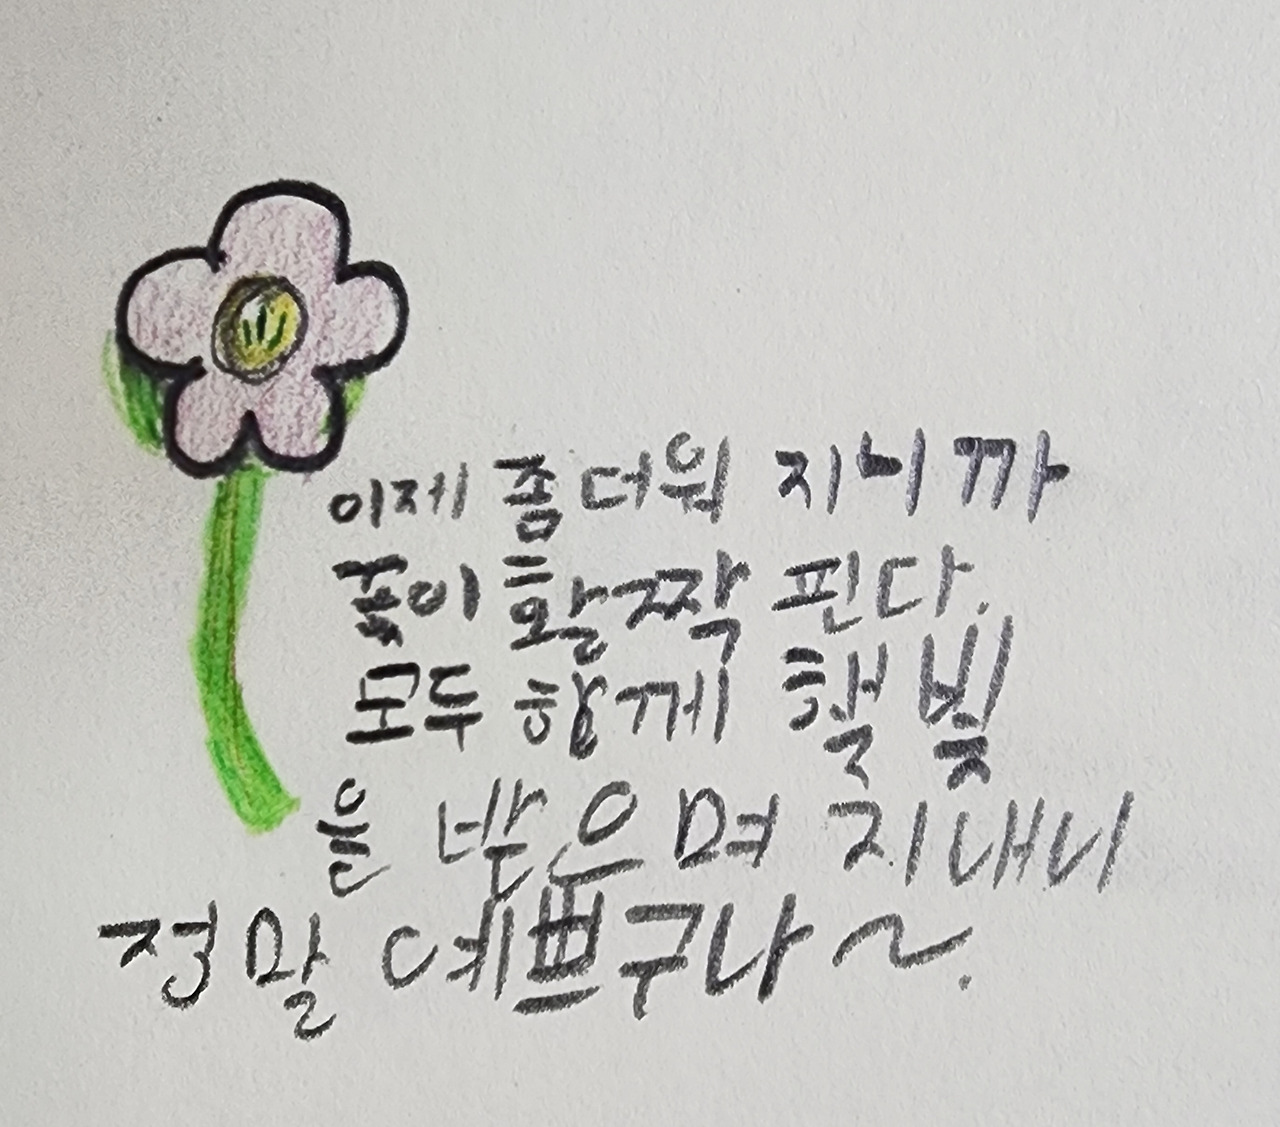 이제 좀 더워 지니까
꽃이 활짝 핀다.
모두 함께 햇빛
을 받으며 지내니
정말 예쁘구나~.